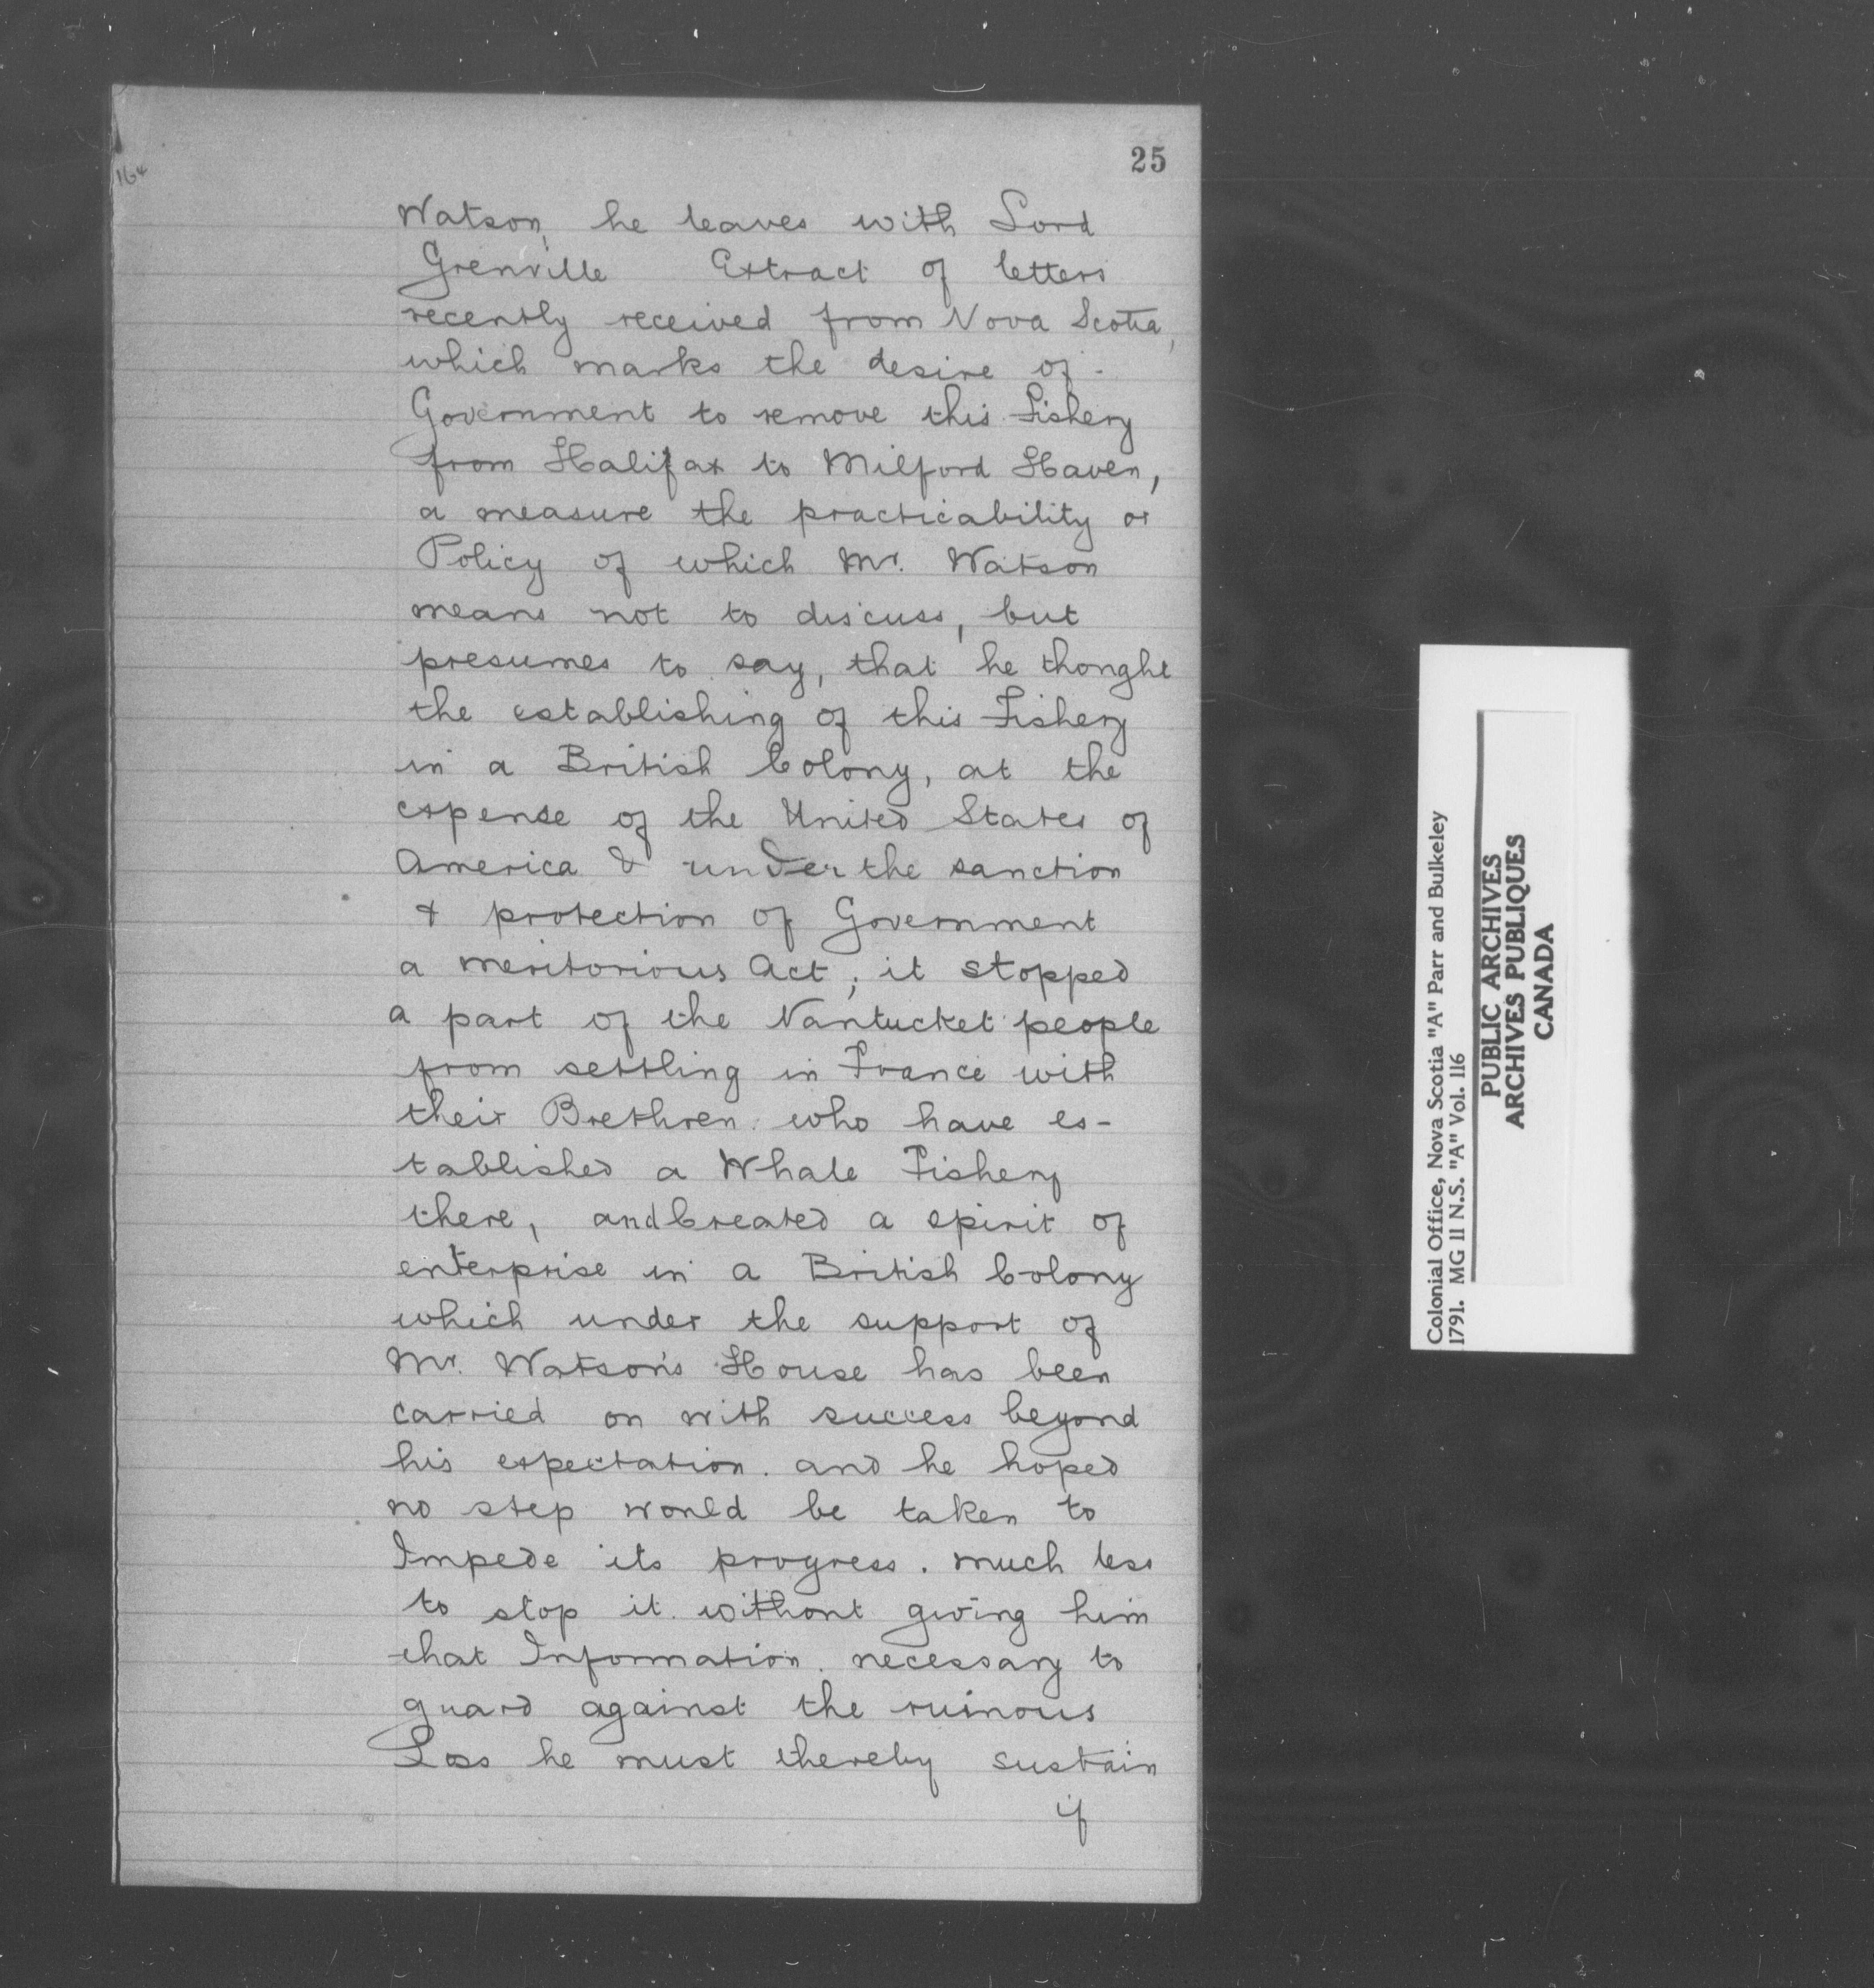 25
164
Watson, he leaves with Lord
Grenville Extract of letters
recently received from Nova Scotia,
which marks the desire of
Government to remove this Fishery
from Halifax to Milford Haven,
a measure the practicability or
Policy of which Mr. Watson
means not to discuss, but
presumes to say, that he thought
the establishing of this Fishery
in a British Colony, at the
expense of the United States of
America & under the sanction
& protection of Government
a meritorious Act; it stopped
a part of the Nantucket people
from settling in France with
their Brethren who have es-
tablished a Whale Fishery
there, and Created a spirit of
enterprise in a British Colony
which under the support of
Mr. Watson's House has been
carried on with success beyond
his expectation. and he hoped
no step would be taken to
Impede its progress. much less
to stop it. without giving him
that Information. necessary to
guard against the ruinous
Loss he must thereby sustain
if
Colonial Office, Nova Scotia "A" Parr and Bulkeley
1791. MG 11 N.S. "A" Vol. 116
PUBLIC ARCHIVES
ARCHIVES PUBLIQUES
CANADA